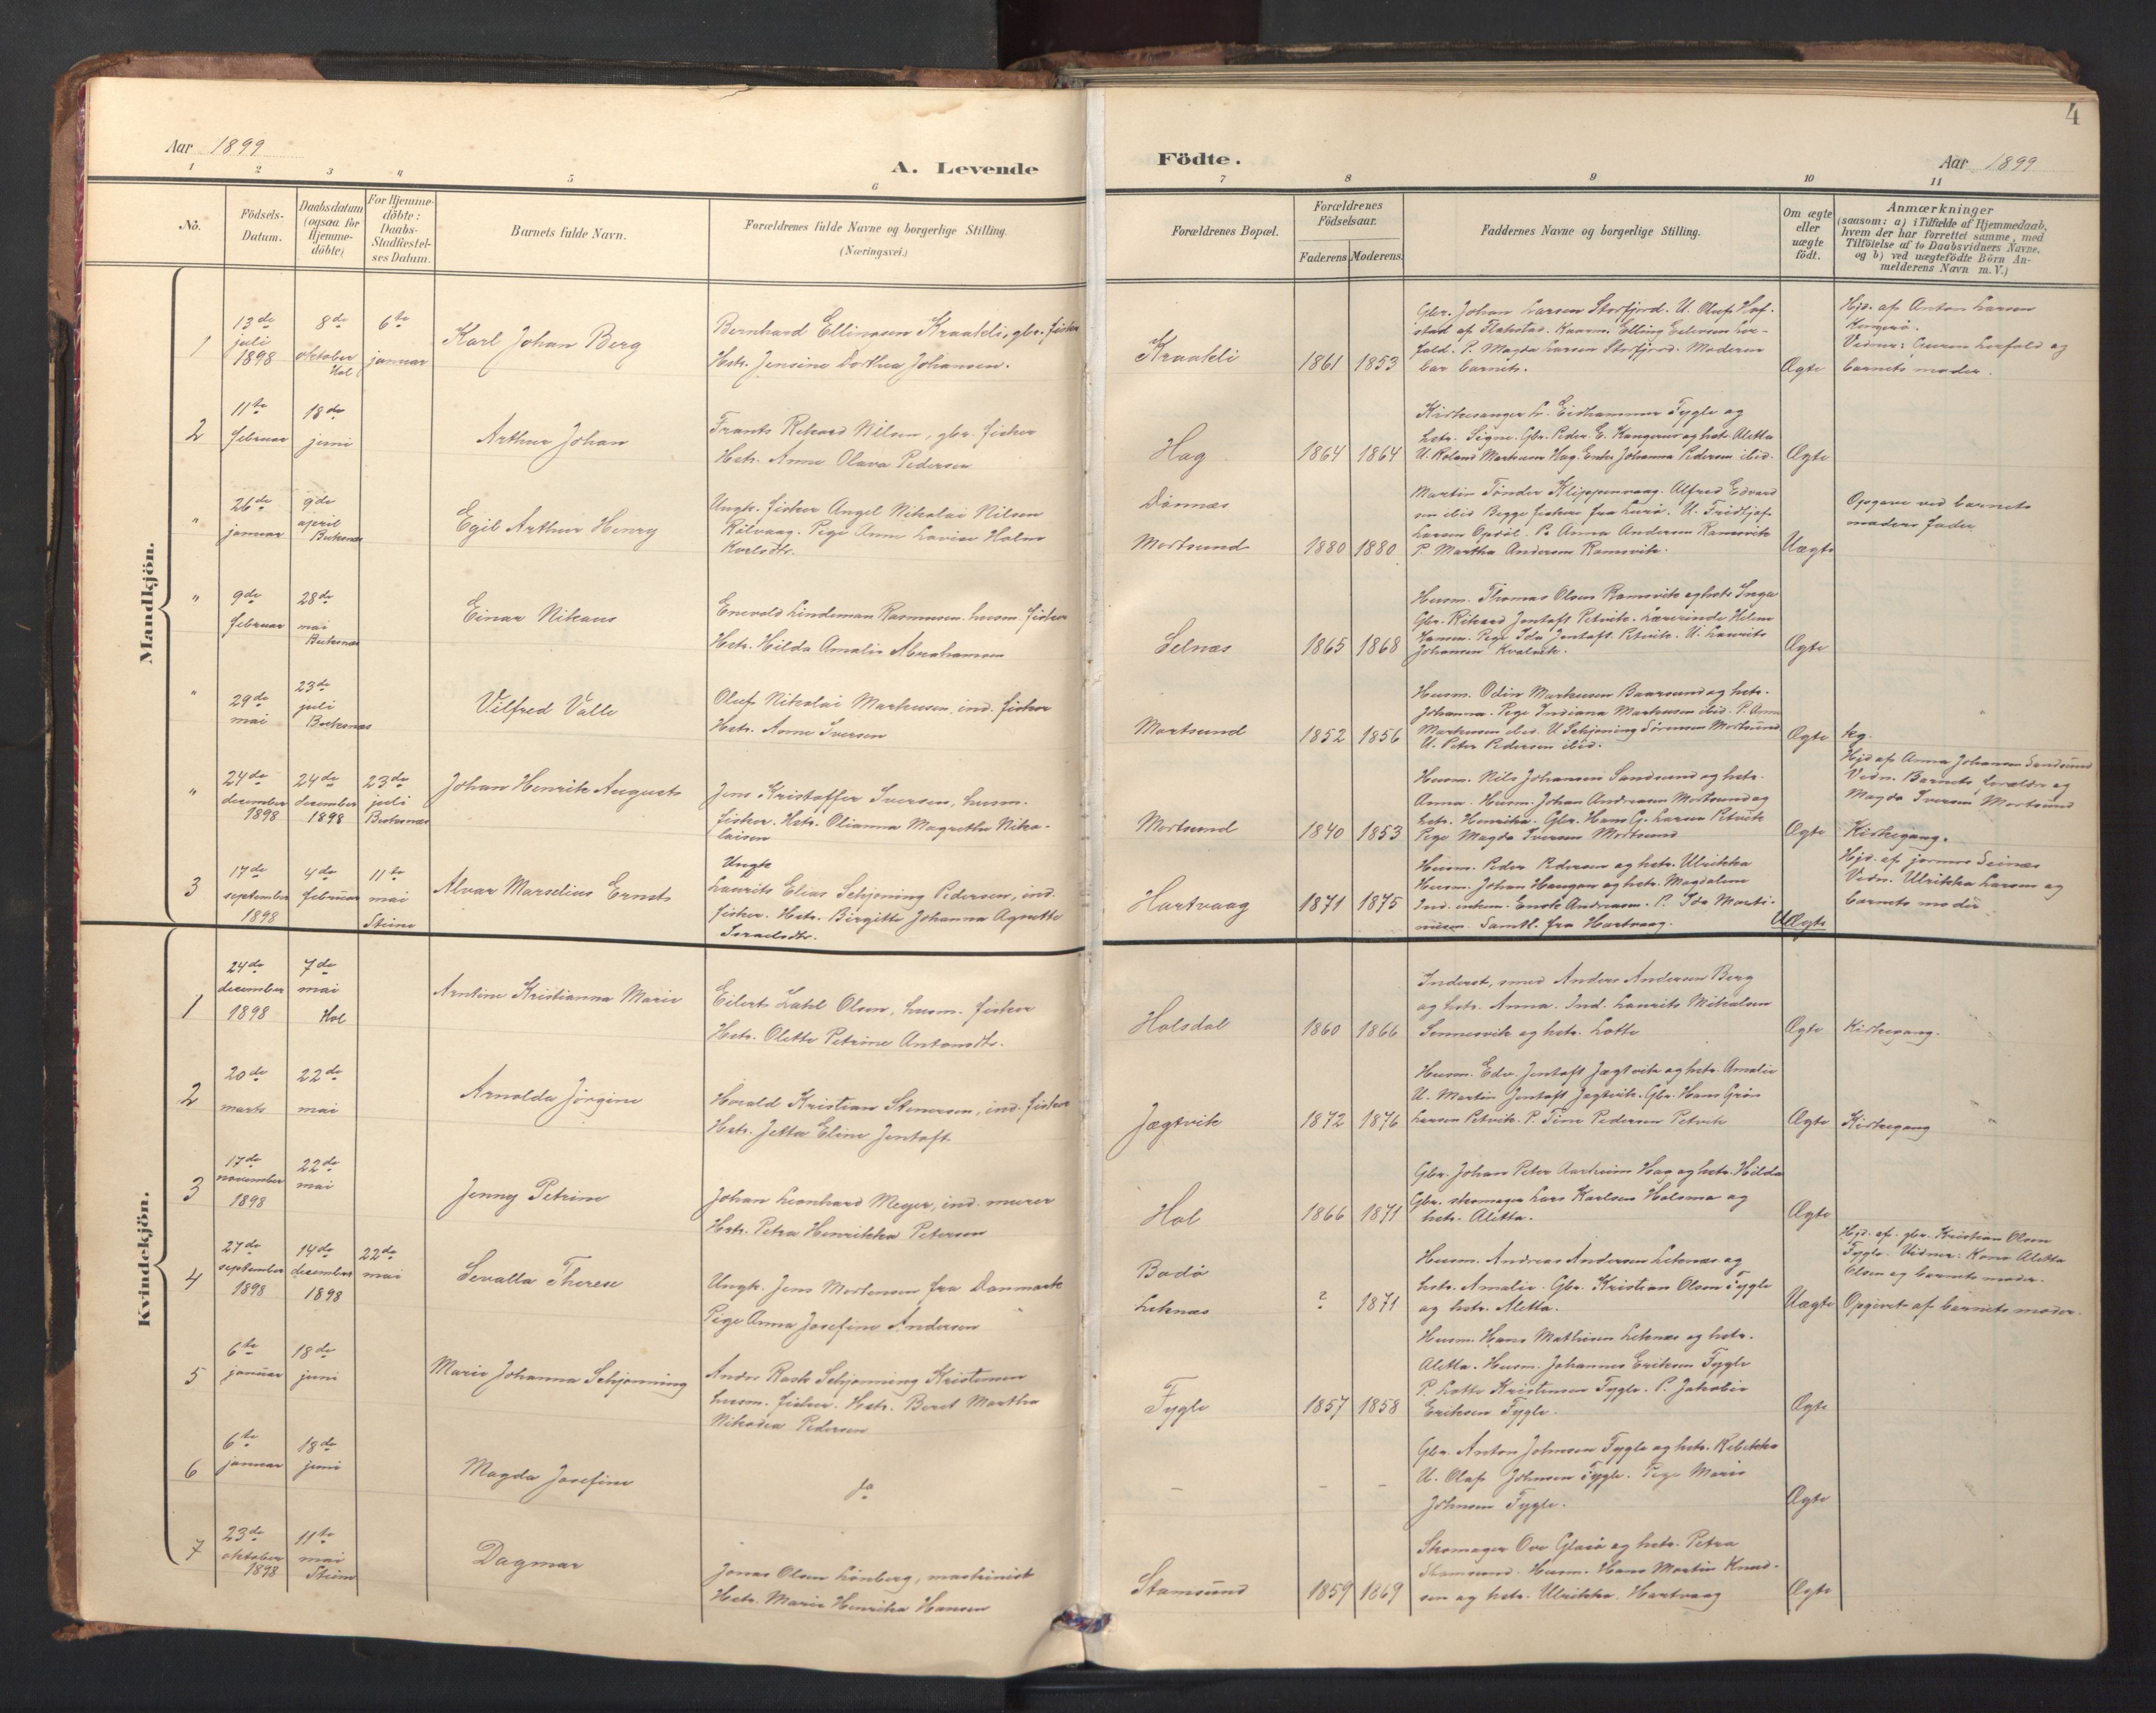 4
Aar 1899
A. Levende
Födte.
Aar 1899
1 2 3 4 5 6 7 8 9 10 11
No.
Födsels-
Datum.
Daabsdatum
(ogsaa for
Hjemme-
döbte)
For Hjemme-
döbte:
Daabs-
Stadfæstel-
ses Datum.
Barnets fulde Navn.
Forældrenes fulde Navne og borgerlige Stilling.
(Næringsvei.)
Forældrenes Bopæl.
Forældrenes
Födselsaar.
Faderens Moderens
Faddernes Navne og borgerlige Stilling.
Om ægte
eller
uægte
födt.
Anmærkninger
(saasom: a) i Tilfælde af Hjemmedaab,
hvem der har forrettet samme, med
Tilföielse af to Daabsvidners Navne,
og b) ved uægtefödte Börn An-
melderens Navn m. V.)
Mandkjön.
1
13de
juli
1898
8de
oktober
Hol
6te
januar
Karl Johan Berg
Bernhard Ellingsen Kraakli, gbr. fisker
Hstr. Jensine Dorthea Johansen.
Kraakli
1861 1853
Gbr. Johan Larsen Storfjord. U. Oluf Hof-
stad af Flakstad. Kaarm. Elling
P. Magda Larsen Storfjord. Moderen
bar barnet.
Ægte
Hjd. af Anton Larsen
Vidner: Lorfald og
barnets moder.
2
11te
februar
18de
juni
Arthur Johan
Frants Rikard Nilsen, gbr. fisker
Hstr. Anne Olava Pedersen
Hag
1864 1864
Kirkesanger L. Eidhammer Fygle og
hstr. Signe. Gbr. Peder E. og hstr. Aletta
U. Roland Markusen Hag. Enke Johanna Pedersen ibid.
Ægte
"
26de
januar
9de
april
Buksnæs
Egil Arthur Henry
Ungk. fisker Angel Nikolai Nilsen
Rölvaag. Pige Anne Lovise Holm
Karlsdtr.
Dönnæs
Mortsund
1880 1880
Martin Tönder Klippenvaag. Alfred Edvard
sen ibid Begge fiskere fra Lurö. U. Fridtjof
Larsen Opdöl. P. Anna Andersen Ramsvik
P. Martha Andersen Ramsvik.
Uægte
Opgave ved barnets
moders fader
"
9de
februar
28de
mai
Buksnæs
Einar Nikaus
Enevold Lindeman Rasmussen husm. fisker
Hstr. Hilda Amalie Abrahamsen
Selnæs
1865 1868
Husm. Thomas Olsen Ramsvik og hstr Inga
Gbr. Rikard Jentoft Petvik. Lærerinde Helene
Hansen. Pige Ida Jentoft Petvik. U. Laurits
Johansen Kvalvik.
Ægte
"
29de
mai
23de
juli
Buksnæs
Vilfred Valle
Oluf Nikolai Markusen, ind. fisker
Hstr. Anne Iversen
Mortsund
1852 1856
Husm. Odin Markusen Baarsund og hstr.
Johanna. Pige Indiana Markusen ibid. P. Anna
Markusen ibid. U Schjöning Sörensen Mortsund
U. Peter Pedersen ibid.
Ægte
kg.
"
24de
december
1898
24de
december
1898
23de
juli
Buksnæs
Johan Henrik August
Jens Kristoffer Iversen, husm.
fisker. Hstr. Olianna Magrethe Niko-
laisen
Mortsund
1840 1853
Husm. Nils Johansen Sandsund og hstr.
Anna. Husm. Johan Andreasen Mortsund og
hstr. Henrika. Gbr. Hans G. Larsen Petvik
Pige Magda Iversen Mortsund
Ægte
Hjd af Anna Johansen Sandsund
Vidn. Barnets forældre og
Magda Iversen Mortsund
Kirkegang.
3
17de
september
1898
4de
februar
11te
mai
Steine
Alvar Marselius Ernst
Ungk
Laurits Elias Schjöning Pedersen, ind.
fisker. Hstr. Birgitte Johanna Agnette
Israelsdtr.
Hartvaag
1871 1875
Husm. Peder Pedersen og hstr. Ulrikka
Husm. Johan Haugan og hstr. Magdalene
Ind. enkem. Enok Andreasen. P. Ida Marti-
nusen. Samtl. fra Hartvaag.
Uægte
Hjd. af jormor Seinæs
Vidn. Ulrikka Larsen og
barnets moder
Kvindekjön.
1
24de
december
1898
7de
mai
Hol
Arntine Kristianna Marie
Eilert Zahl Olsen, husm. fisker
Hstr. Olette Petrine Antonsdtr.
Holsdal
1860 1866
Inderst, smed Anders Andersen Berg
og hstr. Anna. Ind. Laurits Mikalsen
Sennesvik og hstr. Lotte
Ægte
Kirkegang.
2
20de
marts
22de
mai
Arnolda Jörgine
Harald Kristian Stenersen, ind. fisker
Hstr. Jetta Eline Jentoft
Jægtvik
1872 1876
Husm. Edv. Jentoft Jægtvik og hstr. Amalie
U. Martin Jentoft Jægtvik. Gbr. Hans Grön
Larsen Petvik. P. Tine Pedersen Petvik
Ægte
Kirkegang
3
17de
november
1898
22de
mai
Jenny Petrine
Johan Leonhard Meyer, ind. murer
Hstr. Petra Henrikka Petersen
Hol
1866 1871
Gbr. Johan Peter Aarheim Hag og hstr. Hilda
Gbr. skomager Lars Karlsen Holsmo og
hstr. Aletta.
Ægte
4
27de
september
1898
14de
december
1898
22de
mai
Sevalla Therese
Ungk. Jens Mortensen fra Danmark
Pige Anna Josefine Andersen
Bodö
Leknæs
? 1871
Husm. Andreas Andersen Leknæs og
hstr. Amalie. Gbr. Kristian Olsen Fygle
og hstr. Aletta.
Uægte
Hjd. af gbr. Kristian Olsen
Fygle. Vidner: Kone Aletta
Olsen og barnets moder.
Opgivet af barnets moder.
5
6te
januar
18de
juni
Marie Johanna Schjønning
Andor Rask Schjønning Kristensen
husm. fisker. Hstr. Beret Martha
Nikodea Pedersen
Fygle
1857 1858
Husm. Hans Mathisen Leknæs og hstr.
Aletta. Husm. Johannes Eriksen Fygle
P. Lotte Kristensen Fygle. P. Jakobie
Eriksen Fygle.
Ægte
6
6te
januar
18de
juni
Magda Josefine
do
- - -
Gbr. Anton Johnsen Fygle og hstr. Rebekka
U. Olaf Johnsen Fygle. Pige Marie
Johnsen Fygle.
Ægte
7
23de
oktober
1898
11te
mai
Steine
Dagmar
Jonas Olsen Lönberg, maskinist
Hstr. Marie Henrika Hansen
Stamsund
1859 1869
Skomager Ove Glasö og hstr. Petra
Stamsund. Husm. Hans Martin Knud-
sen og hstr. Ulrikka. Hartvaag
Ægte